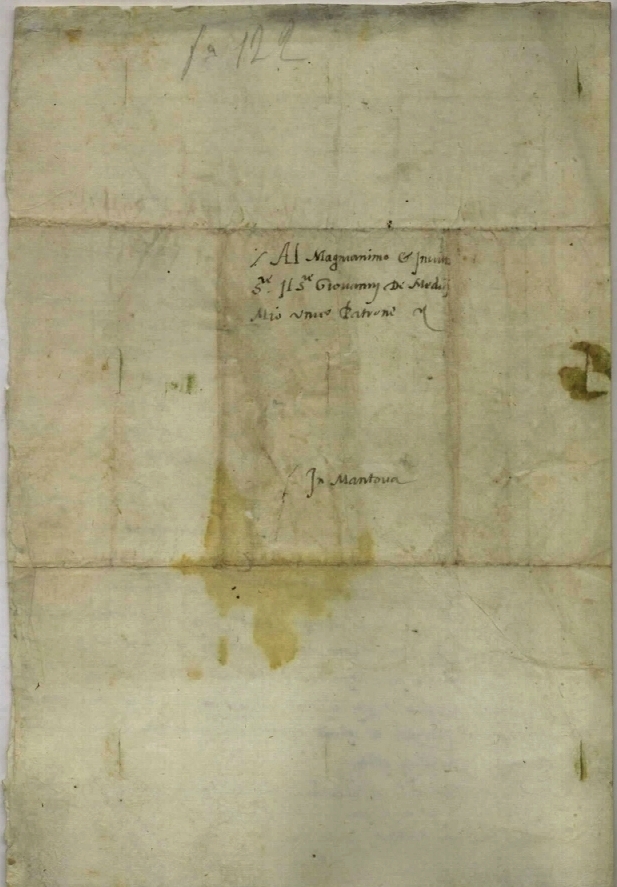 fa 122
/ Al Magnanimo &
S.re Il S.re Giovannj De Medicj
Mio unico Patrone
/ In Mantova